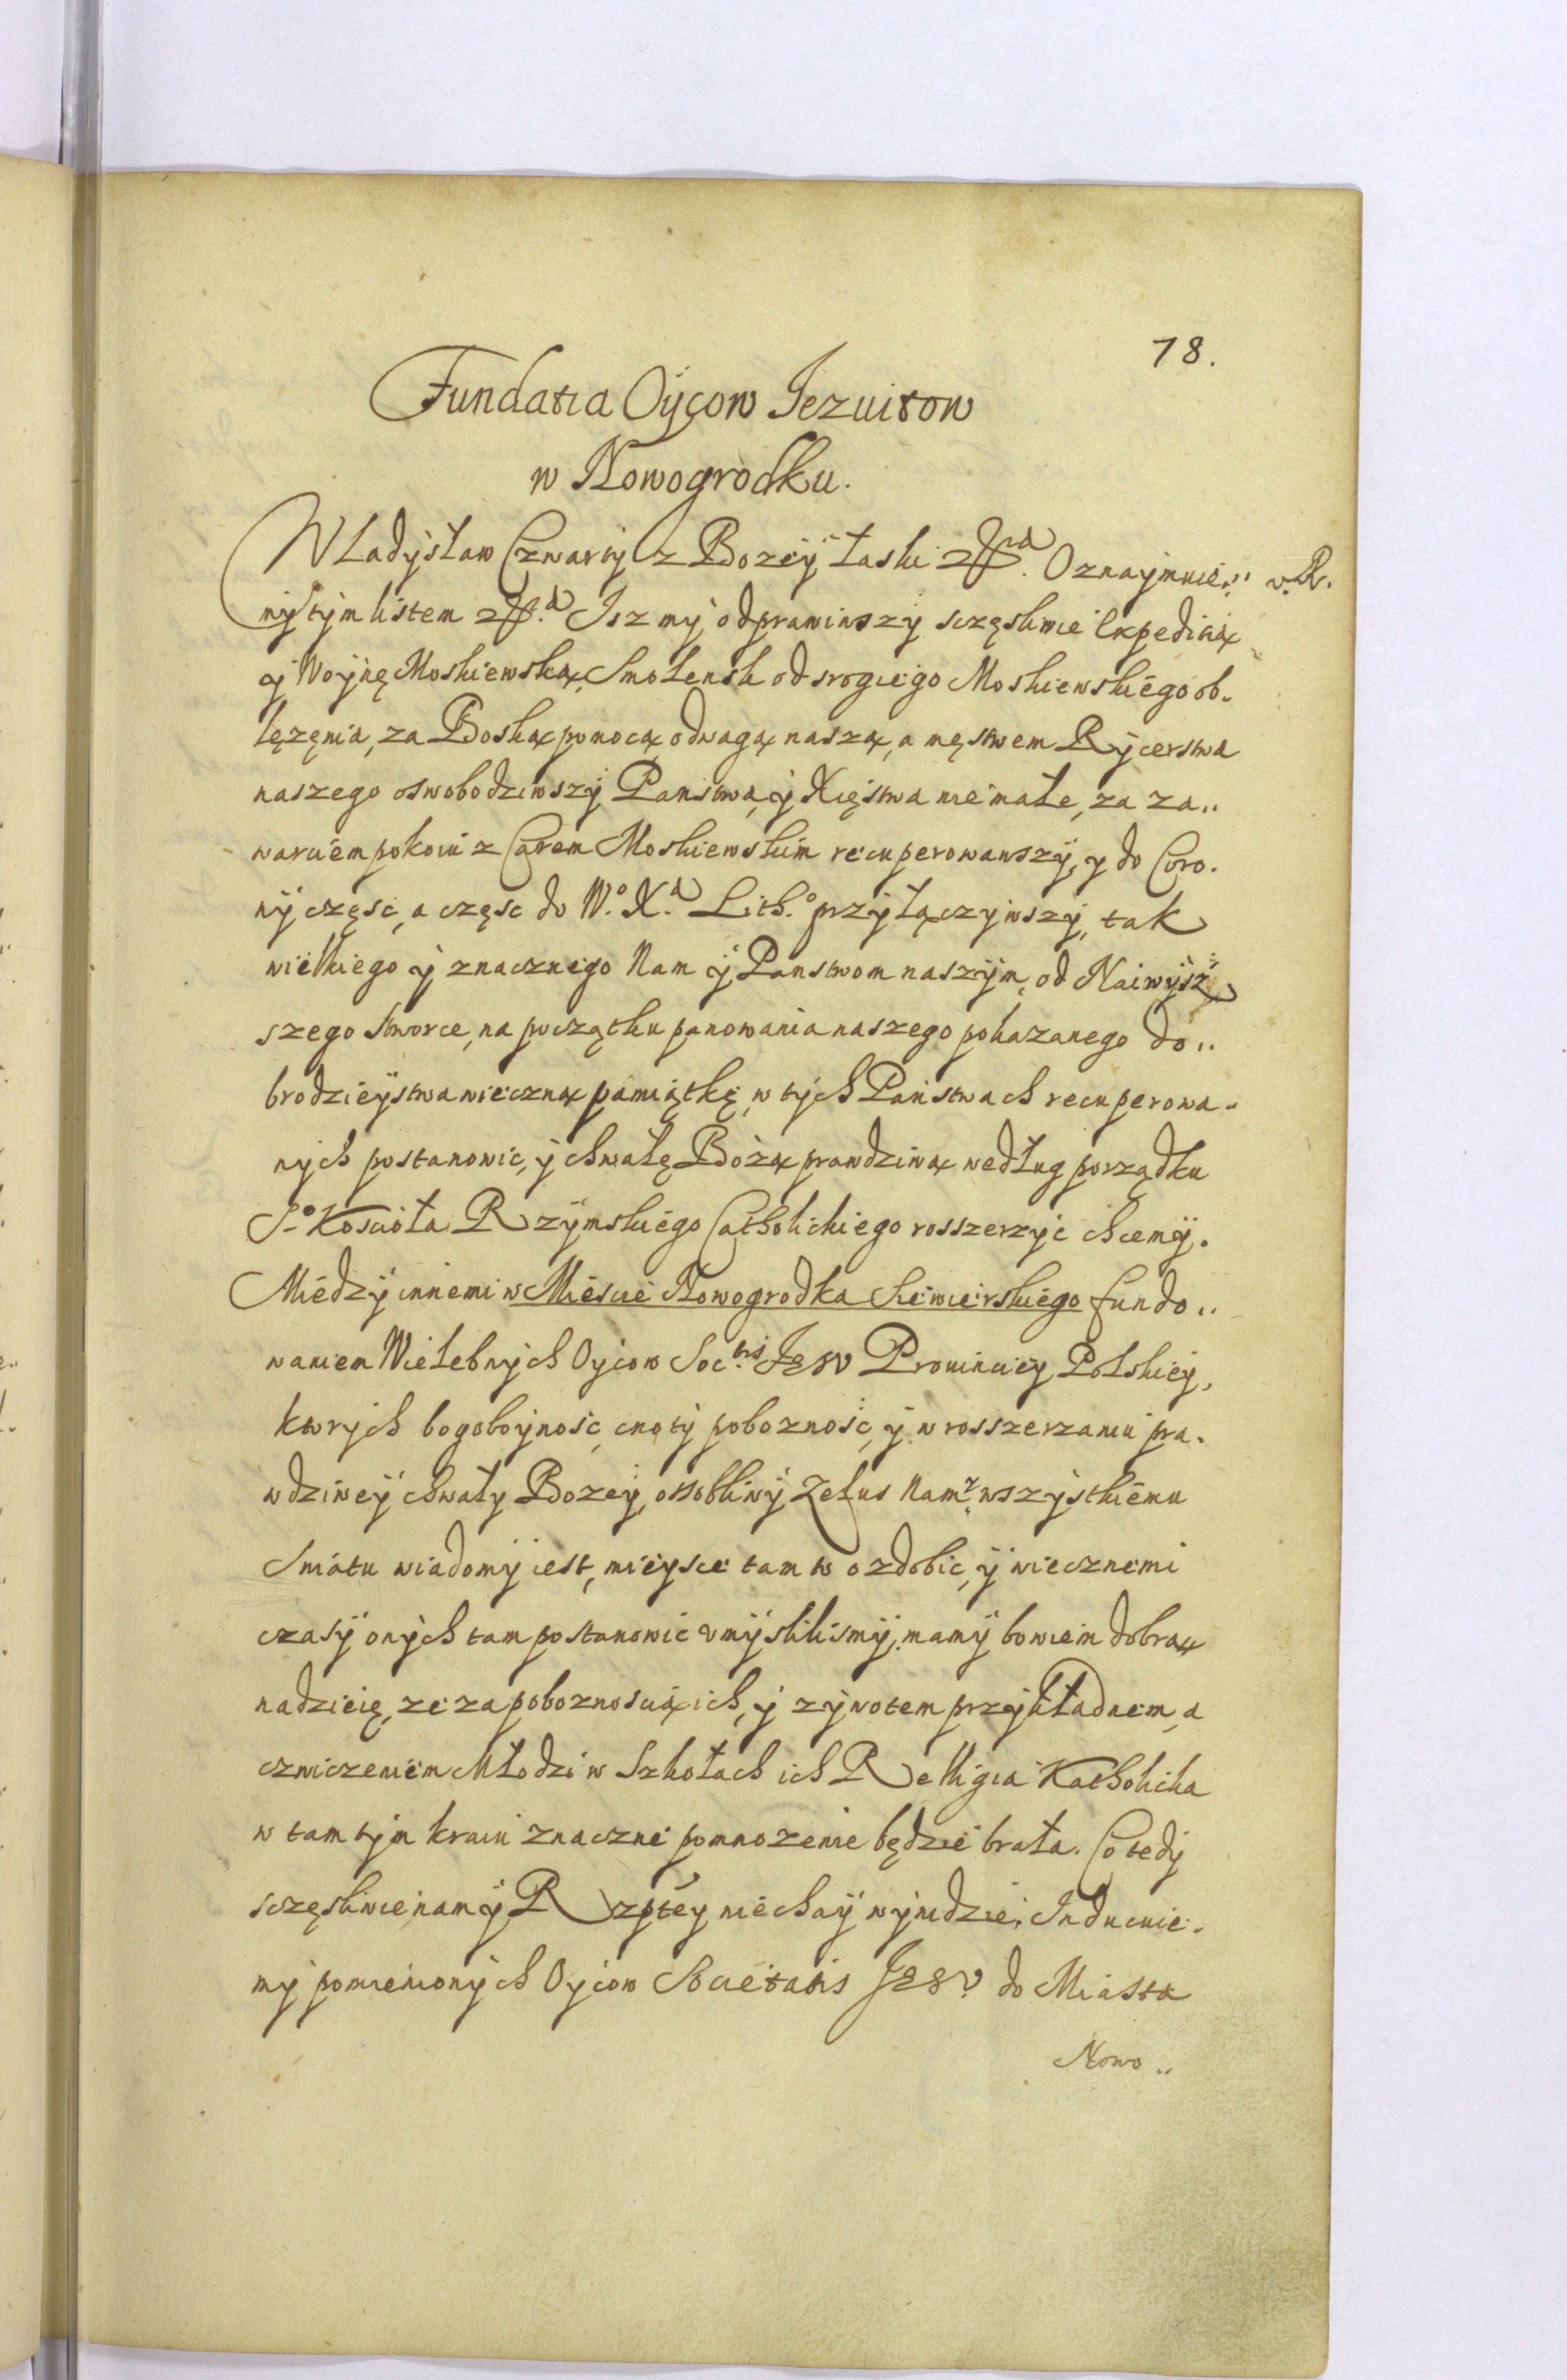 78.
Fundatia Oÿcow Jezuitow
w Nowogrodku.
Władysław Czwarty z Bozeÿ łaski Oznaymuie„ v. R.
mÿ tÿm listem Isz mÿ odprawiwszÿ sczęsliwie Expeditią
ÿ Woÿnę Moskiewską, Smolensk od srogiego Moskiewskiego ob-
lęzęnia, za Boską pomocą odwagą naszą, a męstwem Rÿcerstwa
naszego oswobodziwszÿ Panstwa, ÿ Xięstwa niemałe, za za„
warciem pokoiu z Carem Moskiewskim recuperowawszÿ, y do Coro-
nÿ częsc, a częsc do W.º X.ª Lith.º przÿłączÿwszÿ, tak
wielkiego ÿ znacznego Nam ÿ Panstwom naszÿm, od Naiwÿsz
szego stworce, na początku panowania naszego pokazanego do„
brodzieÿstwa wieczną pamiątkę, w tÿch Panstwach recuperowa-
nÿch postanowic, ÿ chwałę Bożą prawdziwą według porządku
S.º Koscioła Rzÿmskiego Catholickiego rosszerzÿc chcemÿ.
Miedzÿ innemi w Miescie Nowogrodka Siewierskiego fundo„
waniem Wielebnÿch Oÿcow Soc.tis Jesv Prouinciey Polskieÿ,
ktorÿch bogoboÿnosc, cnotÿ poboznosc, ÿ w rosszerzaniu pra-
wdziweÿ chwałÿ Bozeÿ, ossobliwÿ Zelus Nam, ÿ wszÿstkiemu
Swiatu wiadomÿ iest, mieÿsce tamto ozdobic, ÿ wiecznemi
czasÿ onÿch tam postanowic vmÿslilismÿ, mamÿ bowiem dobrą
nadzieię, ze za poboznoscią ich, ÿ zÿwotem przÿkładnem, a
czwiczeniem Młodzi w Szkołach ich Relligia Katholicka
w tamtÿm kraiu znaczne pomnozenie będzie brała. Co tedÿ
sczęsliwie nam ÿ Rzptey niechaÿ wÿnidzie, Inducuie-
mÿ pomienionÿch Oÿcow Societatis Jesv do Miasta
Nowo„